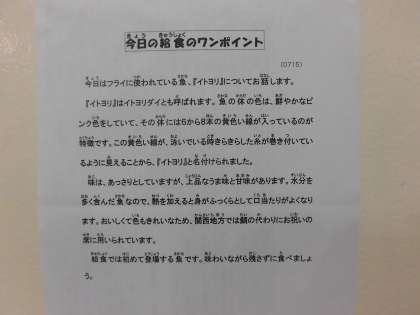 今日の給食のワンポイント
(0715)
今日はフライに使われている魚、『イトヨリ』についてお話します。
『イトヨリ』はイトヨリダイとも呼ばれます。魚の体の色は、鮮やかなピ
ンク色をしていて、その体には6から8本の黄色い線が入っているのが
特徴です。この黄色い線が、泳いでいる時きらきらした糸が巻き付いてい
るように見えることから、『イトヨリ』と名付けられました。
味は、あっさりとしていますが、上品なうま味と甘味があります。水分を
多く含んだ魚なので、熱を加えると身がふっくらとして口当たりがよくなり
ます。おいしくて色もきれいなため、関西地方では鯛の代わりにお祝いの
席に用いられています。
給食では初めて登場する魚です。味わいながら残さずに食べましょ
う。